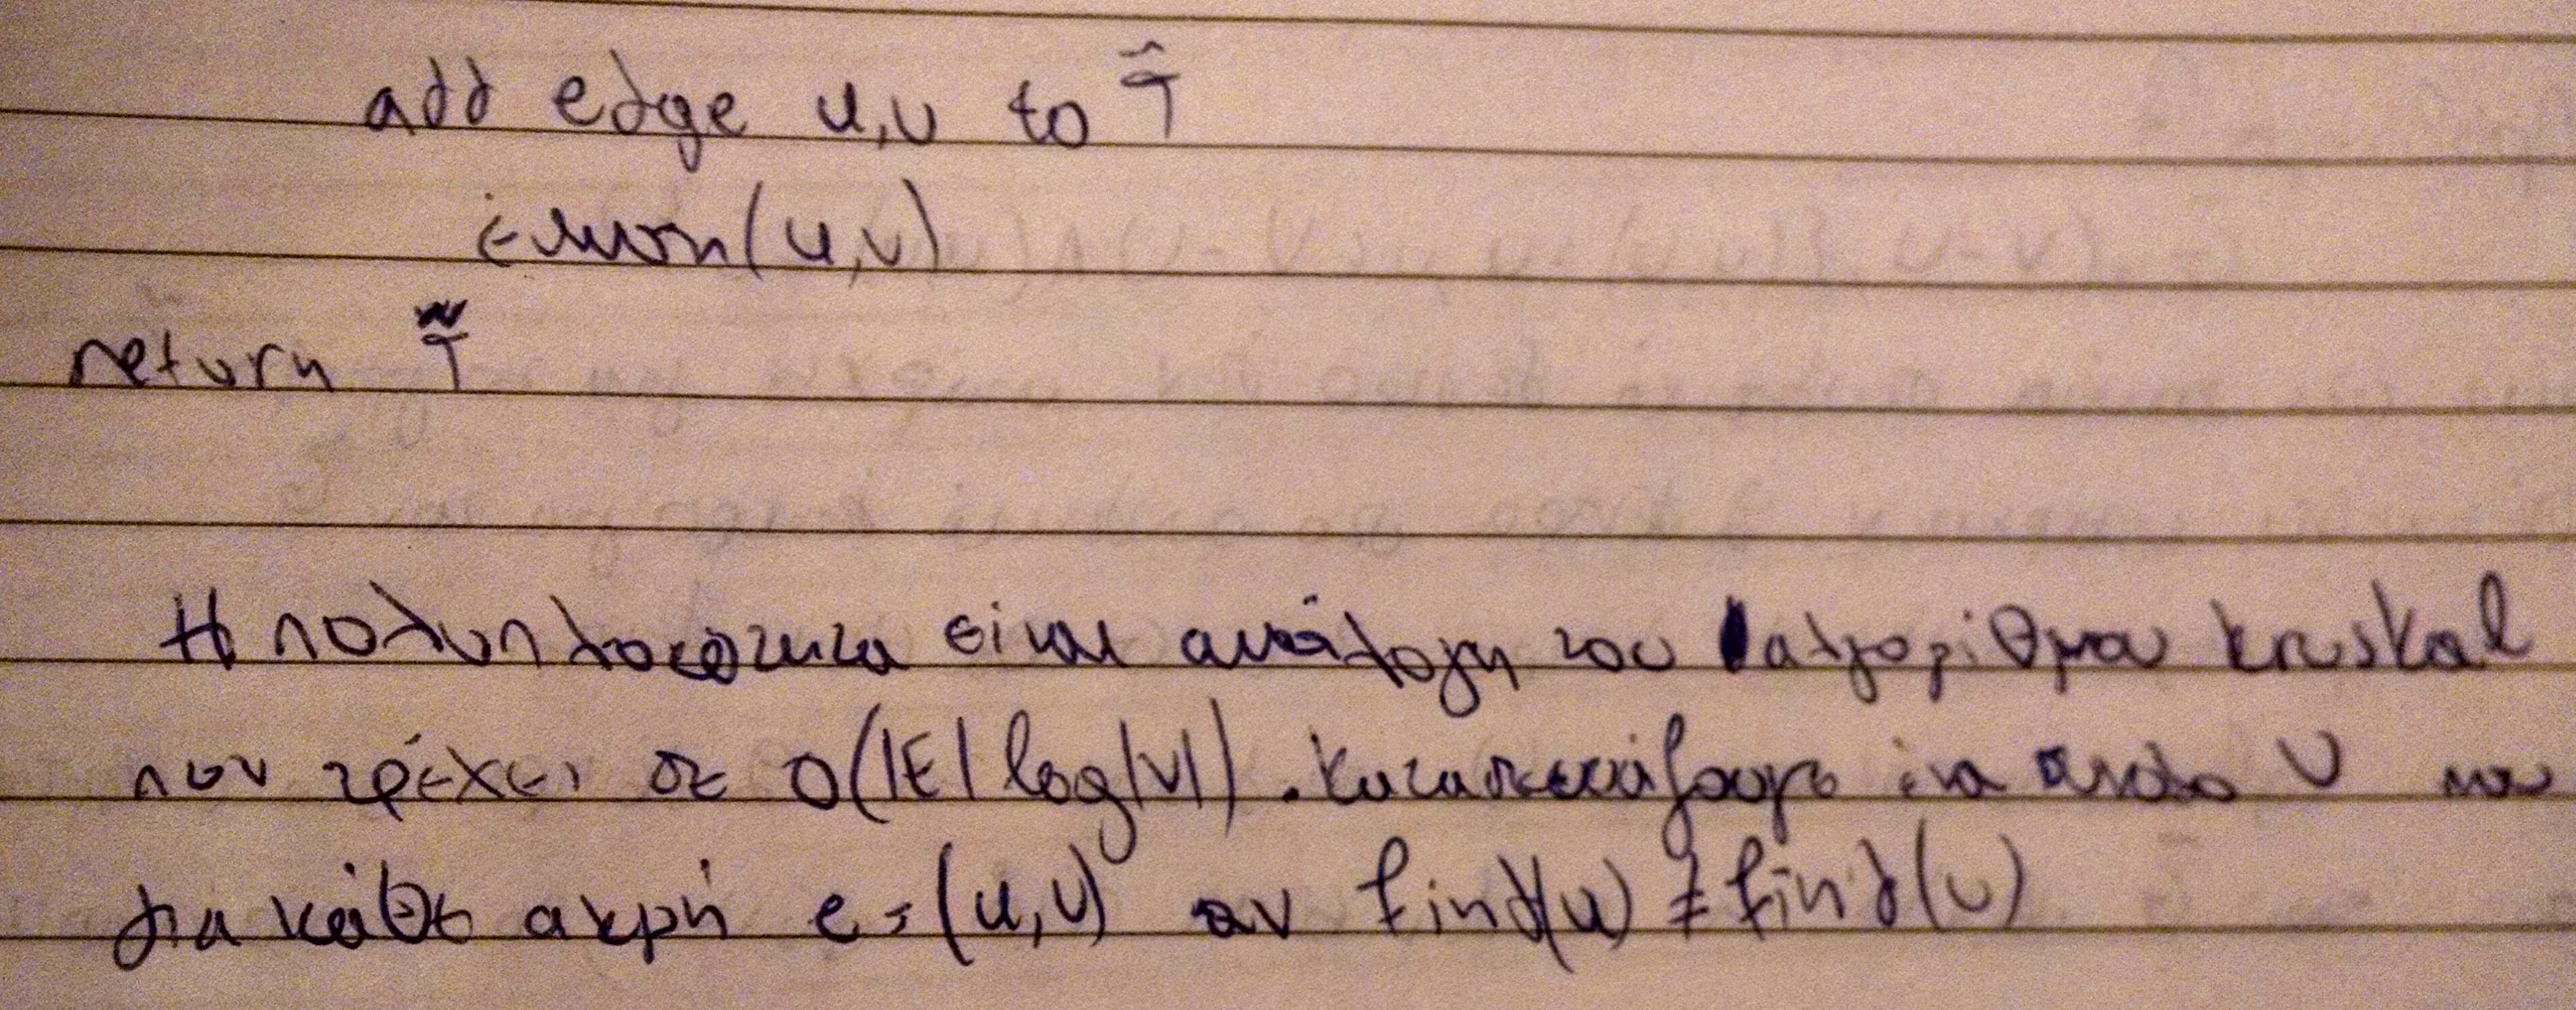 add edge u,v to T̂
ένωση(u,v)
return T̃
Η πολυπλοκότητα είναι ανάλογη του αλγορίθμου kruskal
που τρέχει σε O(|E| log|V|). Κατασκευάζουμε ένα σύνολο U και
για κάθε ακμή e=(u,v) αν find(u) ≠ find(v)